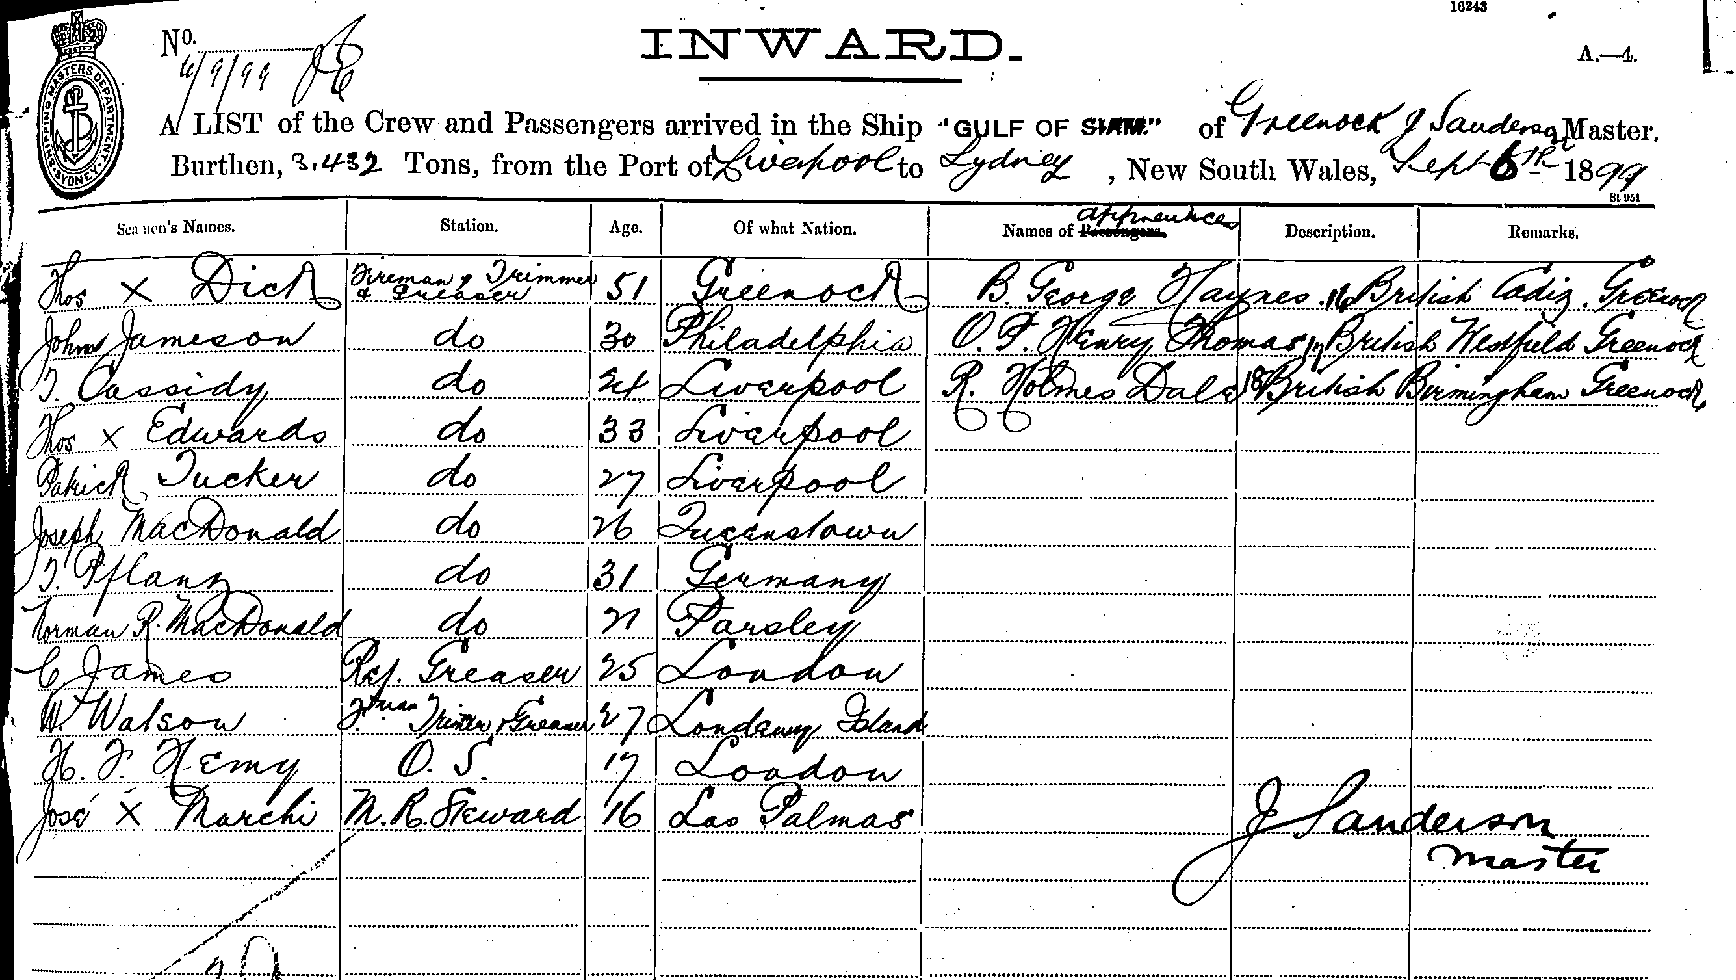 16243
No. INWARD. A.—4.
6/9/99
SHIPPING MASTERS DEPARTMENT SYDNEY
A LIST of the Crew and Passengers arrived in the Ship "GULF OF SIAM" of Greenock J Sanderson Master.
Burthen, 3.432 Tons, from the Port of Liverpool to Sydney, New South Wales, Sept 6th 1899
St 951
Seamen's Names. Station. Age. Of what Nation. Names of Passengers. apprentices Description. Remarks.
Thos X Dick Fireman & Trimmer & Greaser 51 Greenock B. George Haynes 16 British Cadiz. Greenock
John Jameson do 30 Philadelphia O. F. Henry Thomas British Westfield Greenock
T. Cassidy do 24 Liverpool R. Holmes Dale 18 British Birmingham Greenock
Thos X Edwards do 33 Liverpool
Patrick Tucker do 27 Liverpool
Joseph MacDonald do 26 Queenstown
T. Pflanz do 31 Germany
Norman R. MacDonald do 21 Farsley
C James Ref. Greaser 25 London
W. Watson F.man Trimer & Greaser 27 Island
H. F. Hemy O. S. 17 London
José X Marchi M. R. Steward 16 Las Palmas
J Sanderson
Master